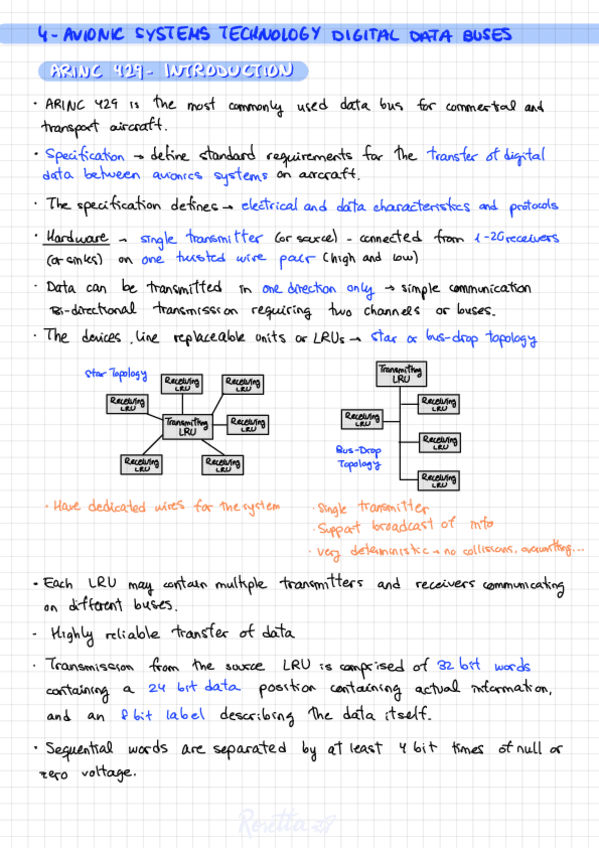 4- AVIONIC SYSTEMS TECHNOLOGY DIGITAL DATA BUSES
ARINC 429 - INTRODUCTION
· ARINC 429 is the most commonly used data bus for commertial and
transport aircraft.
· Specification → define standard requirements for the transfer of digital
data between avionics systems on aircraft.
· The specification defines → electrical and data characteristics and protocols
· Hardware → single transmitter (or source) - connected from 1-20 receivers
(or sinks) on one twisted wire pair (high and low)
· Data can be transmitted in one direction only → simple communication
Bi-directional transmission requiring two channels or buses.
· The devices, line replaceable units or LRUs → star or bus-drop topology
Star Topology
Receiving
LRU
Receiving
LRU
Receiving
LRU
Transmitting
LRU
Receiving
LRU
Receiving
LRU
Receiving
LRU
Transmitting
LRU
Receiving
LRU
Receiving
LRU
Receiving
LRU
Bus-Drop
Topology
Receiving
LRU
· Have dedicated wires for the system
· Single transmitter
· Support broadcast of info
· very deterministic → no collisions, overwritting...
· Each LRU may contain multiple transmitters and receivers communicating
on different buses.
- Highly reliable transfer of data
· Transmission from the source LRU is comprised of 32 bit words
containing a 24 bit data position containing actual information,
and an 8 bit label describing the data itself.
· Sequential words are separated by at least 4 bit times of null or
zero voltage.
Rosetta